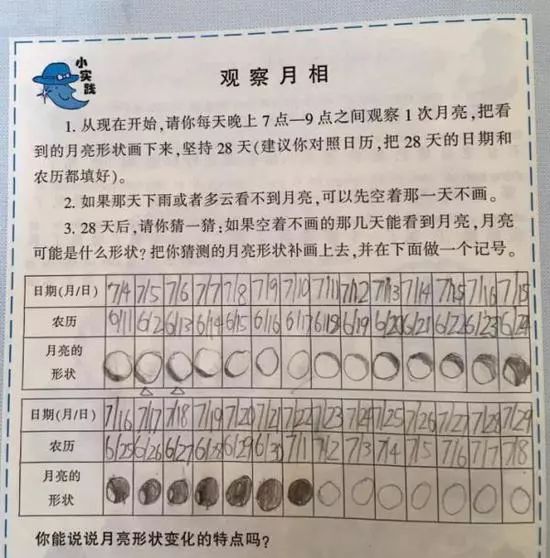 小实践
观察月相
1. 从现在开始,请你每天晚上 7 点—9 点之间观察 1 次月亮,把看
到的月亮形状画下来,坚持 28 天(建议你对照日历,把 28 天的日期和
农历都填好)。
2. 如果那天下雨或者多云看不到月亮,可以先空着那一天不画。
3. 28 天后,请你猜一猜:如果空着不画的那几天能看到月亮,月亮
可能是什么形状?把你猜测的月亮形状补画上去,并在下面做一个记号。
日期(月/日) 7/4 7/5 7/6 7/7 7/8 7/9 7/10 7/11 7/12 7/13 7/14 7/15
农历 6/11 6/13 6/14 6/15 6/16 6/17 6/18 6/19 6/20 6/21 6/22 6/23 6/24
月亮的
形状
日期(月/日) 7/16 7/17 7/18 7/19 7/20 7/21 7/22 7/23 7/24 7/25 7/26 7/27 7/28 7/29
农历 6/25 6/26 6/27 6/28 6/29 6/30 7/1 7/2 7/3 7/4 7/5 7/6 7/7 7/8
月亮的
形状
你能说说月亮形状变化的特点吗?